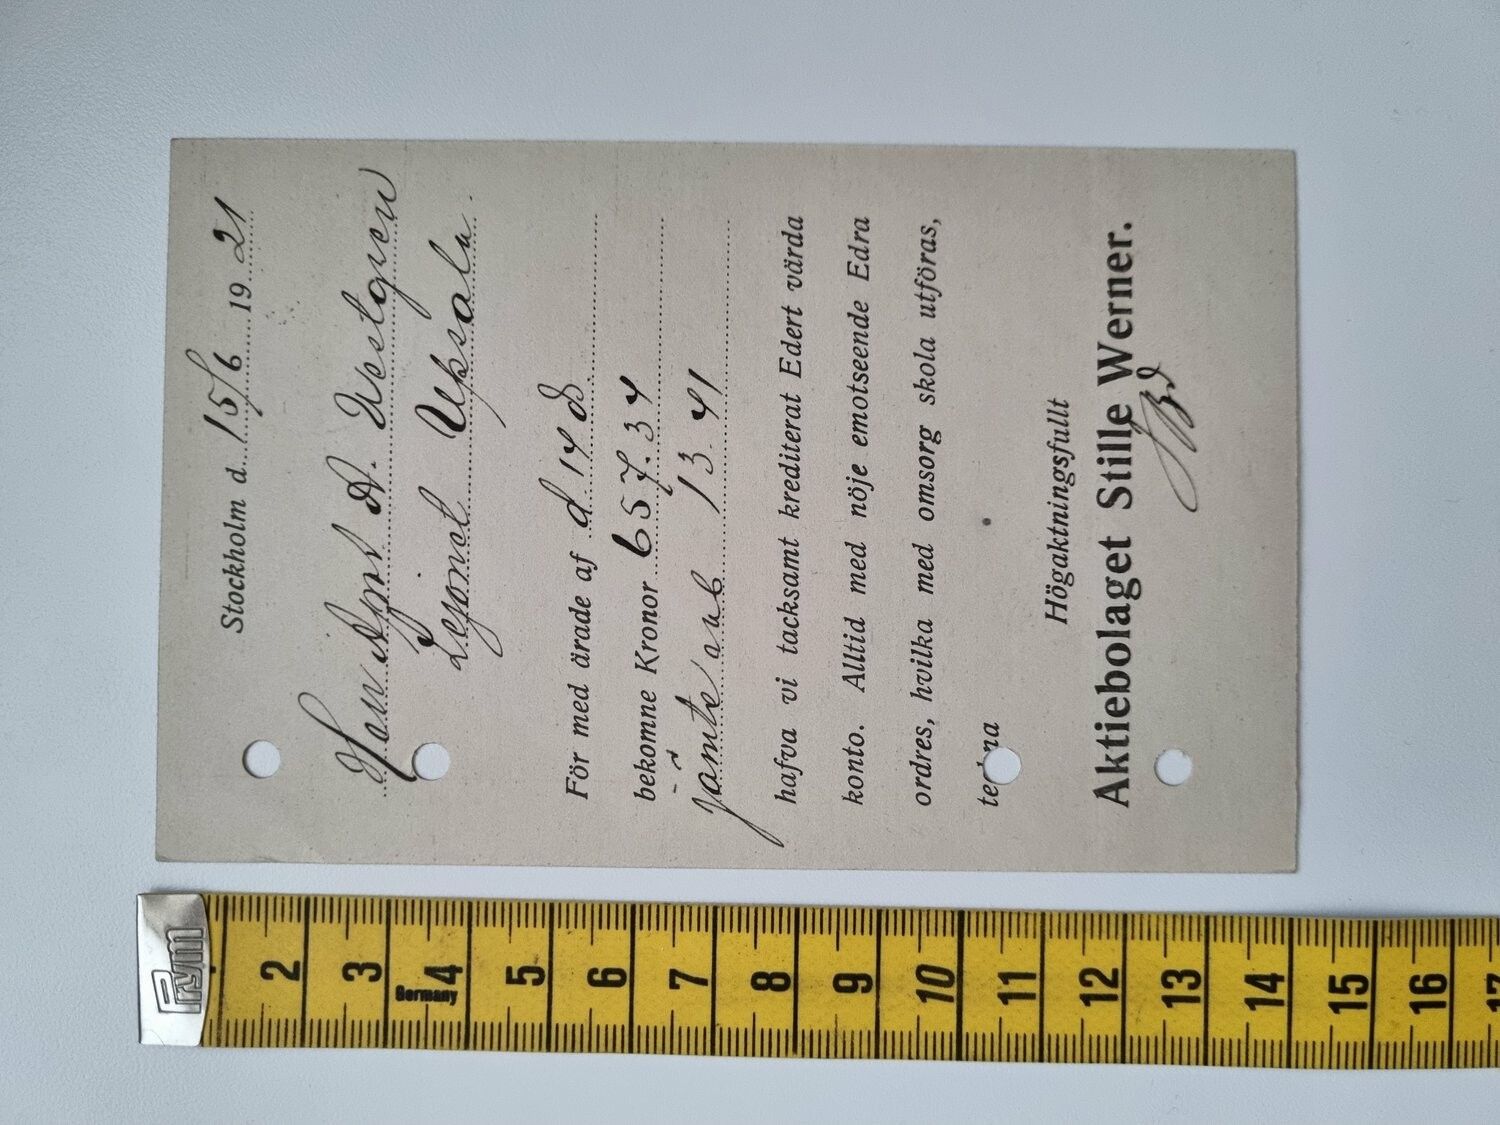 Stockholm d. 15/6 1921
Herr Apot. A. Westgren
Lejonet Upsala.
För med ärade af d. 14 ds
bekomne Kronor 657.34
jämte rab 13.41
hafva vi tacksamt krediterat Edert värda
konto. Alltid med nöje emotseende Edra
ordres, hvilka med omsorg skola utföras,
te na
Högaktningsfullt
Aktiebolaget Stille Werner.
Prym
2 3 4 5 6 7 8 9 10 11 12 13 14 15 16 17
Germany